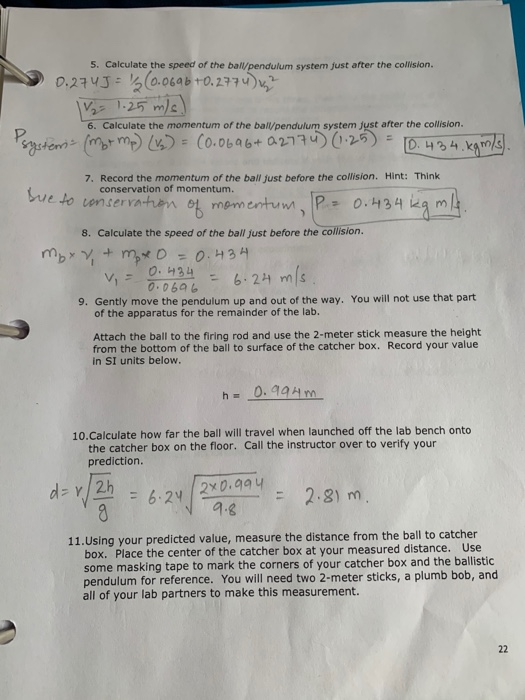 5. Calculate the speed of the ball/pendulum system just after the collision.
0.274J = ½(0.0696+0.2774)v₂²
V₂= 1.25 m/s
6. Calculate the momentum of the ball/pendulum system just after the collision.
Psystem= (mb+mp)(v₂) = (0.0696+0.2774)(1.25) = 0.434.kgm/s.
7. Record the momentum of the ball just before the collision. Hint: Think
conservation of momentum.
Due to conservation of momentum, P = 0.434 kg m/s.
8. Calculate the speed of the ball just before the collision.
mb×v₁ + mp×0 = 0.434
V₁ = 0.434/0.0696 = 6.24 m/s.
9. Gently move the pendulum up and out of the way. You will not use that part
of the apparatus for the remainder of the lab.
Attach the ball to the firing rod and use the 2-meter stick measure the height
from the bottom of the ball to surface of the catcher box. Record your value
in SI units below.
h = 0.994m
10.Calculate how far the ball will travel when launched off the lab bench onto
the catcher box on the floor. Call the instructor over to verify your
prediction.
d= v√(2h/g) = 6.24√(2×0.994/9.8) = 2.81 m.
11.Using your predicted value, measure the distance from the ball to catcher
box. Place the center of the catcher box at your measured distance. Use
some masking tape to mark the corners of your catcher box and the ballistic
pendulum for reference. You will need two 2-meter sticks, a plumb bob, and
all of your lab partners to make this measurement.
22